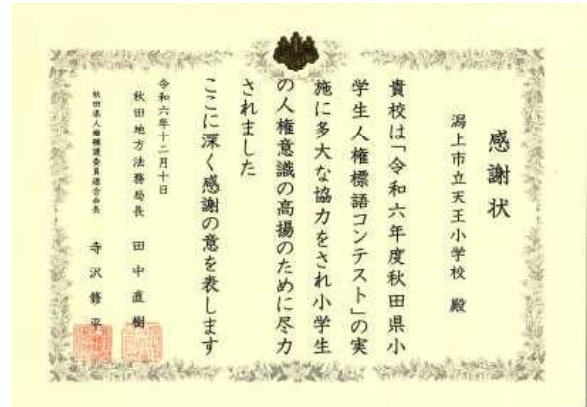 感謝状
潟上市立天王小学校 殿
貴校は「令和六年度秋田県小
学生人権標語コンテスト」の実
施に多大な協力をされ小学生
の人権意識の高揚のために尽力
されました
ここに深く感謝の意を表します
令和六年十二月十日
秋田地方法務局長 田中直樹
秋田県人権擁護委員連合会長 寺沢修平